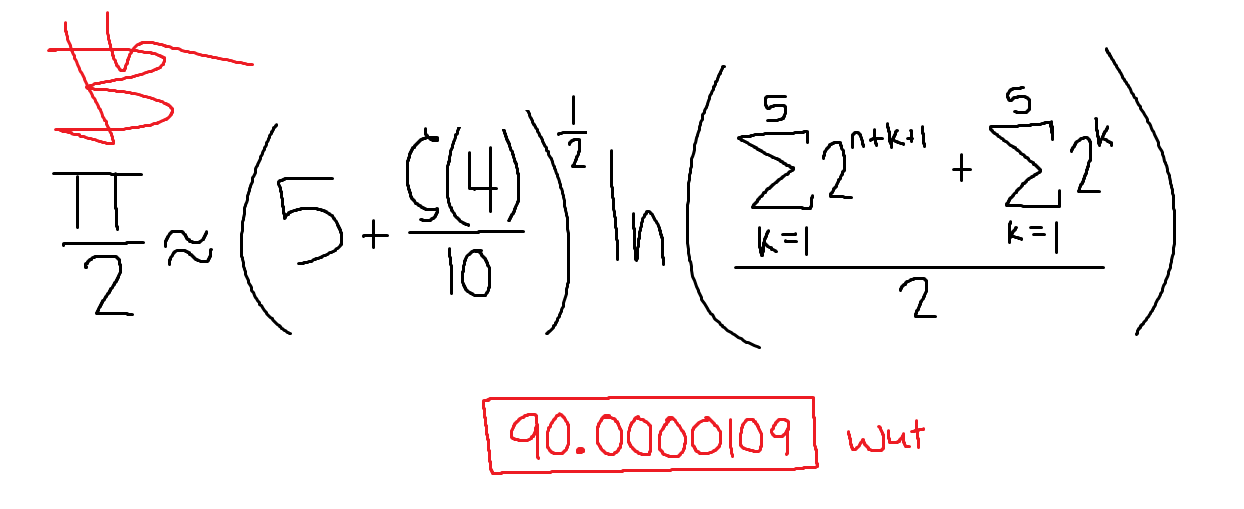 π/2 ≈ (5 + ζ(4)/10)^(1/2) ln((∑_{k=1}^{5} 2^{n+k+1} + ∑_{k=1}^{5} 2^k)/2)
90.0000109 wut